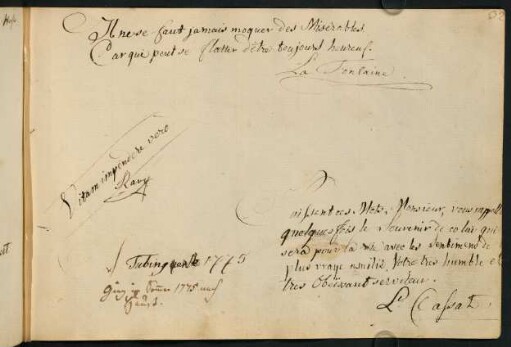 Il ne se faut jamais moquer des Misérables
Car qui peut se flatter d'être toujours heureux.
La Fontaine.
Vitam impendere vero
Puissent ces Mots, Monsieur, vous rappeller
quelques fois le souvenir de celui qui
sera pour la vie avec les sentimens de
plus vraye amitié, Votre très humble et
très Obéissant serviteur.
Tubingue le 1775
1775